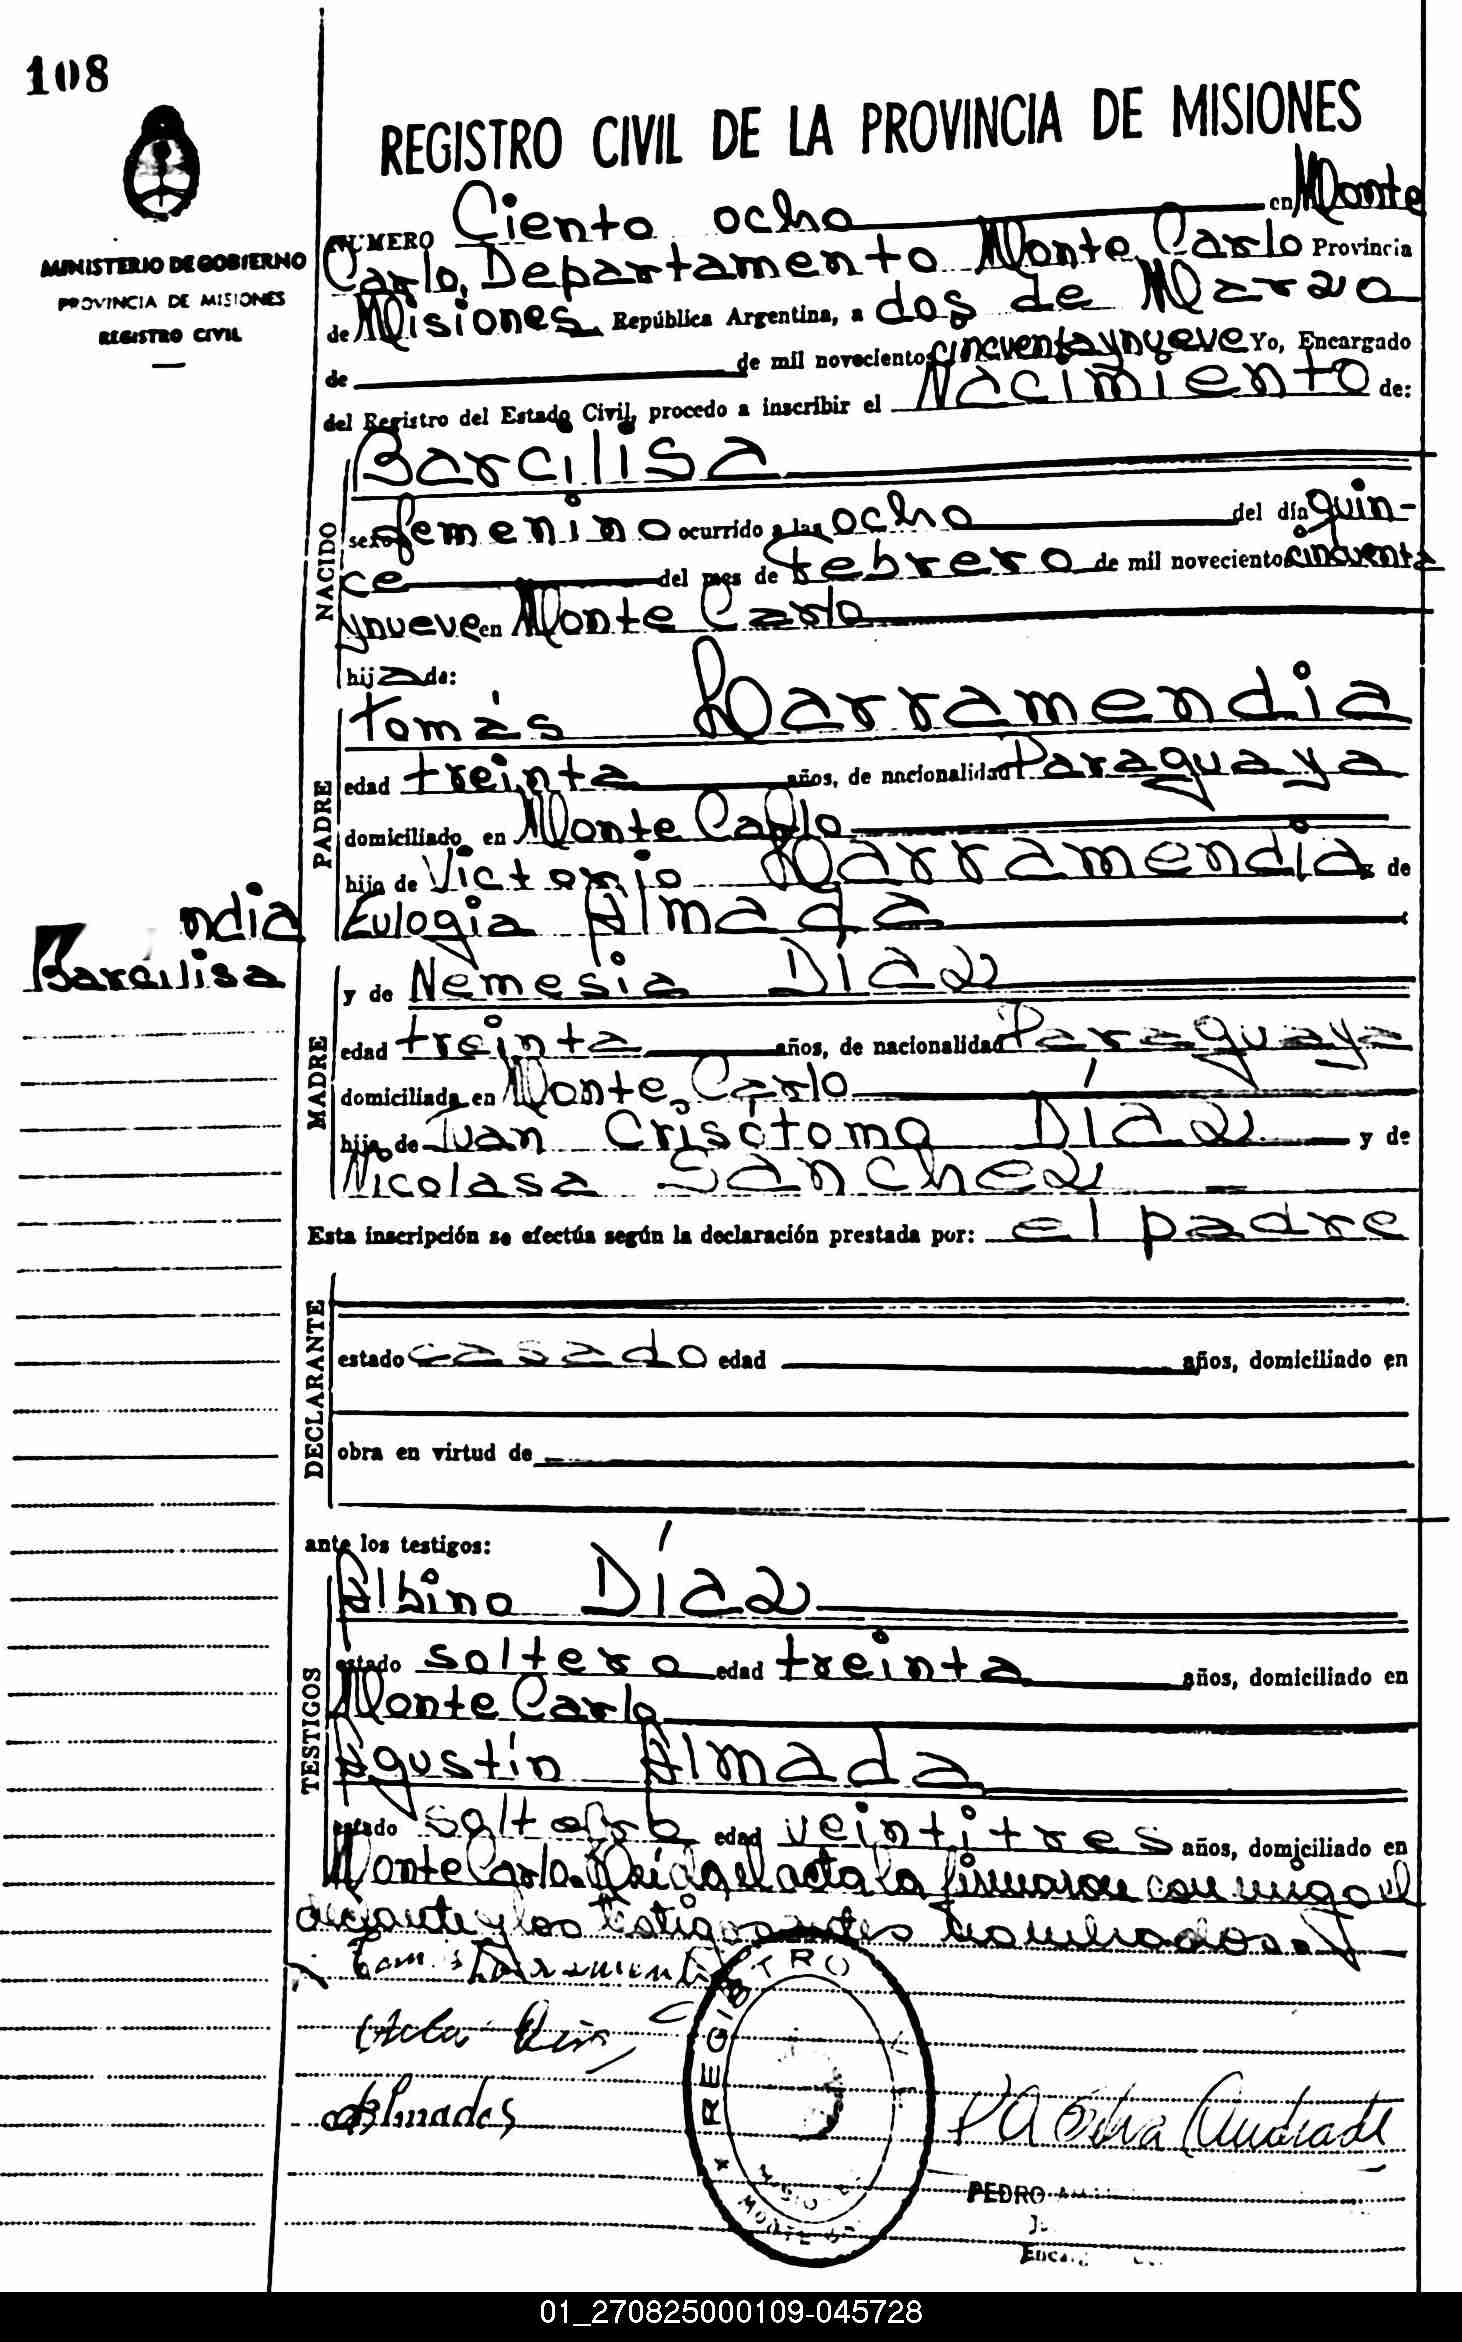 108
MINISTERIO DE GOBIERNO
PROVINCIA DE MISIONES
REGISTRO CIVIL
REGISTRO CIVIL DE LA PROVINCIA DE MISIONES
NUMERO Ciento ocho en Monte
Carlo, Departamento Monte Carlo Provincia
de Misiones República Argentina, a dos de Marzo
de de mil novecientos cincuentaynueve Yo, Encargado
del Registro del Estado Civil, procedo a inscribir el Nacimiento de:
Barcilisa
NACIDO
sexo femenino ocurrido a las ocho del día quin-
ce del mes de febrero de mil novecientos cincuenta
ynueve en Monte Carlo
hija de:
PADRE
Tomás Larramendia
edad treinta años, de nacionalidad Paraguaya
domiciliado en Monte Carlo
hijo de Victorio Larramendia de
Eulogia Almada
ndia
Barcilisa
MADRE
y de Nemesia Díaz
edad treinta años, de nacionalidad Paraguaya
domiciliada en Monte Carlo
hija de Juan Crisótomo Díaz y de
Nicolasa Sanchez
Esta inscripción se efectúa según la declaración prestada por: el padre
DECLARANTE
estado casado edad años, domiciliado en
obra en virtud de
ante los testigos:
TESTIGOS
Albino Díaz
estado soltero edad treinta años, domiciliado en
Monte Carlo
Agustín Almada
estado soltero edad veintitres años, domiciliado en
Monte Carlo. Leída el acta la firmaron conmigo el
decante y los testigos antes nombrados.
REGISTRO
Almada
Silva Andrade
PEDRO
01_270825000109-045728